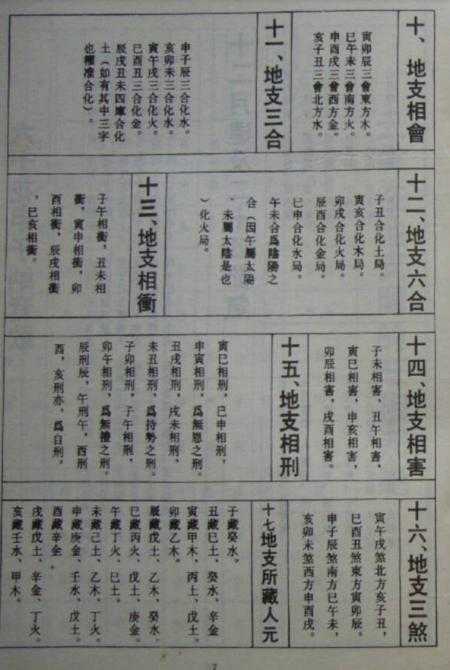 十、地支相會
寅卯辰三會東方木。
巳午未三會南方火。
申酉戌三會西方金。
亥子丑三會北方水。
十一、地支三合
申子辰三合化水。
亥卯未三合化木。
寅午戌三合化火。
巳酉丑三合化金。
辰戌丑未四庫合化
土（如有其中三字
也權准合化）。
十二、地支六合
子丑合化土局。
寅亥合化木局。
卯戌合化火局。
辰酉合化金局。
巳申合化水局。
午未合爲陰陽之
合（因午屬太陽
，未屬太陰是也
）化火局。
十三、地支相衝
子午相衝，丑未相
衝，寅申相衝，卯
酉相衝，辰戌相衝
，巳亥相衝。
十四、地支相害
子未相害，丑午相害，
寅巳相害，申亥相害，
卯辰相害，戌酉相害。
十五、地支相刑
寅巳相刑，巳申相刑，
申寅相刑，爲無恩之刑。
丑戌相刑，戌未相刑，
未丑相刑，爲持勢之刑。
子卯相刑，子午相刑，
卯午相刑，爲無禮之刑。
辰刑辰，午刑午，酉刑
酉，亥刑亦，爲自刑，
十六、地支三煞
寅午戌煞北方亥子丑，
巳酉丑煞東方寅卯辰。
申子辰煞南方巳午未，
亥卯未煞西方申酉戌。
十七地支所藏人元
子藏癸水。
丑藏己土、癸水、辛金
寅藏甲木、丙土、戊土。
卯藏乙木。
辰藏戊土、乙木、癸水。
巳藏丙火、戊土、庚金。
午藏丁火、己土。
未藏己土、乙木、丁火。
申藏庚金、壬水、戊土。
酉藏辛金
戌藏戊土、辛金、丁火。
亥藏壬水、甲木。
7